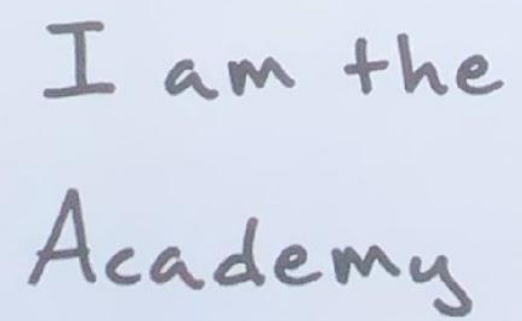 I am the
Academy